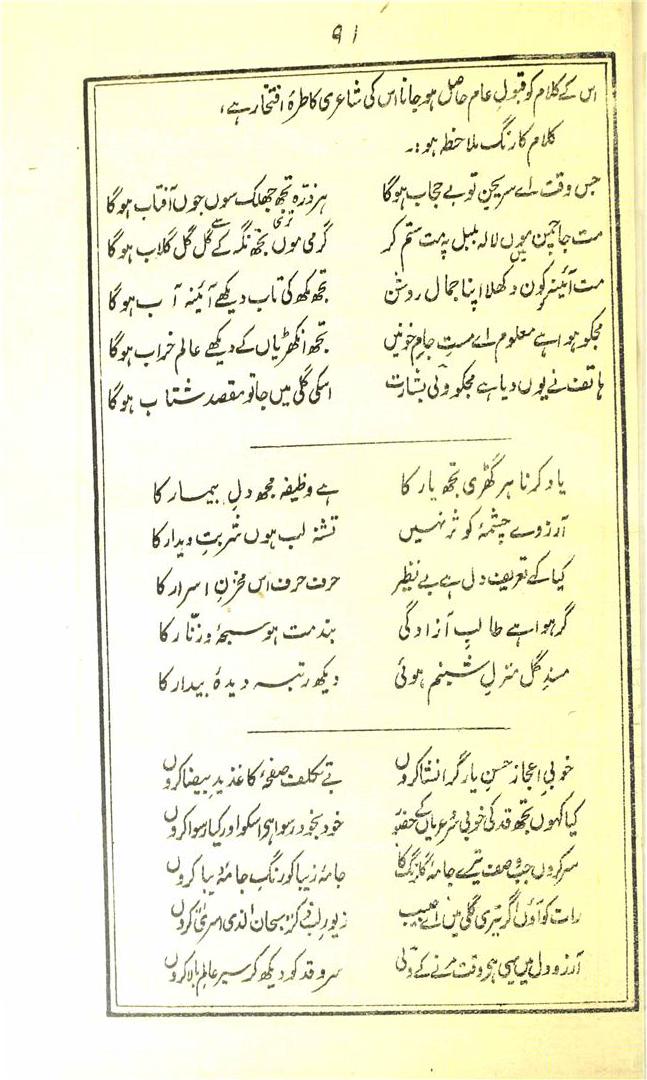 ۹۱
اس کے کلام کو قبولِ عام حاصل ہو جانا اس کی شاعری کا طرۂ افتخار ہے،
کلام کا رنگ ملاحظہ ہو:۔
جس وقت اے سریجن تو بے حجاب ہوگا ہر ذرّہ تجھ جھلک سوں جوں آفتاب ہوگا
مت جا چمن موں لالہ بلبل پہ مت ستم کر گرمی موں تجھ نگہ کے گل گل گلاب ہوگا
میں تری سے
مت آئینہ کون دکھلا اپنا جمال روشن تجھ مکھ کی تاب دیکھے آئینہ آب ہوگا
مجکو ہوا ہے معلوم اے مستِ جامِ خونیں تجھ انکھڑیاں کے دیکھے عالم خراب ہوگا
ہاتف نے یوں دیا ہے مجکو ولی بشارت اسکی گلی میں جا تو مقصد شتاب ہوگا
یاد کرنا ہر گھڑی تجھ یار کا ہے وظیفہ مجھ دلِ بیمار کا
آرزوے چشمۂ کوثر نہیں تشنہ لب ہوں شربتِ دیدار کا
کیا کہے تعریف دل ہے بے نظیر حرف حرف اس مخزنِ اسرار کا
گر ہوا ہے طالبِ آزادگی بند مت ہو سبحۂ و زنّار کا
مسندِ گل منزلِ شبنم ہوئی دیکھ رتبہ دیدۂ بیدار کا
خوبیِ اعجازِ حسنِ یار گر انشا کروں بے تکلف صفحۂ کاغذ یدِ بیضا کروں
کیا کہوں تجھ قد کی خوبی سروِ عریاں کے حضور خود بخود رسوا ہی اسکو اور کیا رسوا کروں
سر کروں جب وصف تیرے جامۂ گلرنگ کا جامۂ زیبا کو رنگِ جامۂ دیبا کروں
رات کو آؤں اگر تیری گلی میں اے حبیب زیورِ لب ذکرِ سبحان الذی اسریٰ کروں
آرزو دل میں یہی ہر وقت مرنے کے ولی سرو قد کو دیکھ کر سیرِ عالمِ بالا کروں